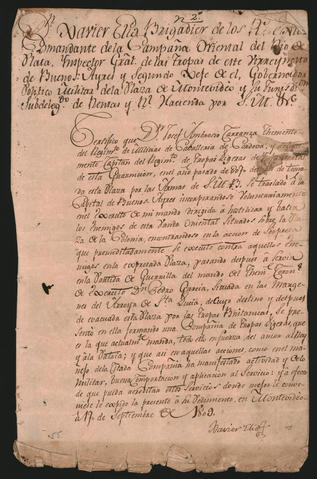 n. 2.
Dn. Xavier Elio Brigadier de los Rs. Extos.
Comandante de la Campaña Oriental del Rio de
Plata, Inspector Gral. de las tropas de este Virreynato
de Buenos-Ayres y Segundo Xefe de el, Governador
Politico y Militar de la Plaza de Montevideo y Su
Subdelegdo. de Rentas y Rl. Hacienda por S. M. &c.
Certifico que Dn. Josef Ambrosio Carranza Theniente
del Regimto. de Milicias de Cavalleria de Cordova, y
mente Capitan del Regimto. de Tropas Ligeras
de esta Guarnicion, en el año pasado de 807
esta Plaza por las Armas de S. M. B. se trasladó a la
Capital de Buenos-Ayres incorporandose
en el Exercito de mi mando dirigido á hostilizar y batir
los enemigos de esta Vanda Oriental situados sobre la Plaza
de la Colonia, encontrandose en la accion de
que premeditadamente se executó contra aquellos ene-
migos en la expresada Plaza, pasando despues á servir
en la Partida de Guerrilla del mando del Thente. Coronl.
de Exercito Dn. Pedro Garcia, situada en las margenes
del Arroyo de Sta. Lucia, de cuyo destino y despues
de evacuada esta Plaza por las tropas Britanicas, se pre-
sentó en ella formando una Compañia de tropas Ligeras, que
es la que actualmte. manda, todo en esfuerzo del amor al Rey
y á la Patria; y que asi en aquellas acciones como en el ma-
nejo de la citada Compañia ha manifestado actividad y Celo
Militar, buena comportacion y aplicacion al Servicio: y á efecto
de que pueda acreditar estos Servicios donde mejor le convi-
niese le expido la presente á su Pedimento, en Montevideo
á 17. de Septiembre de 1809.
Xavier Elio